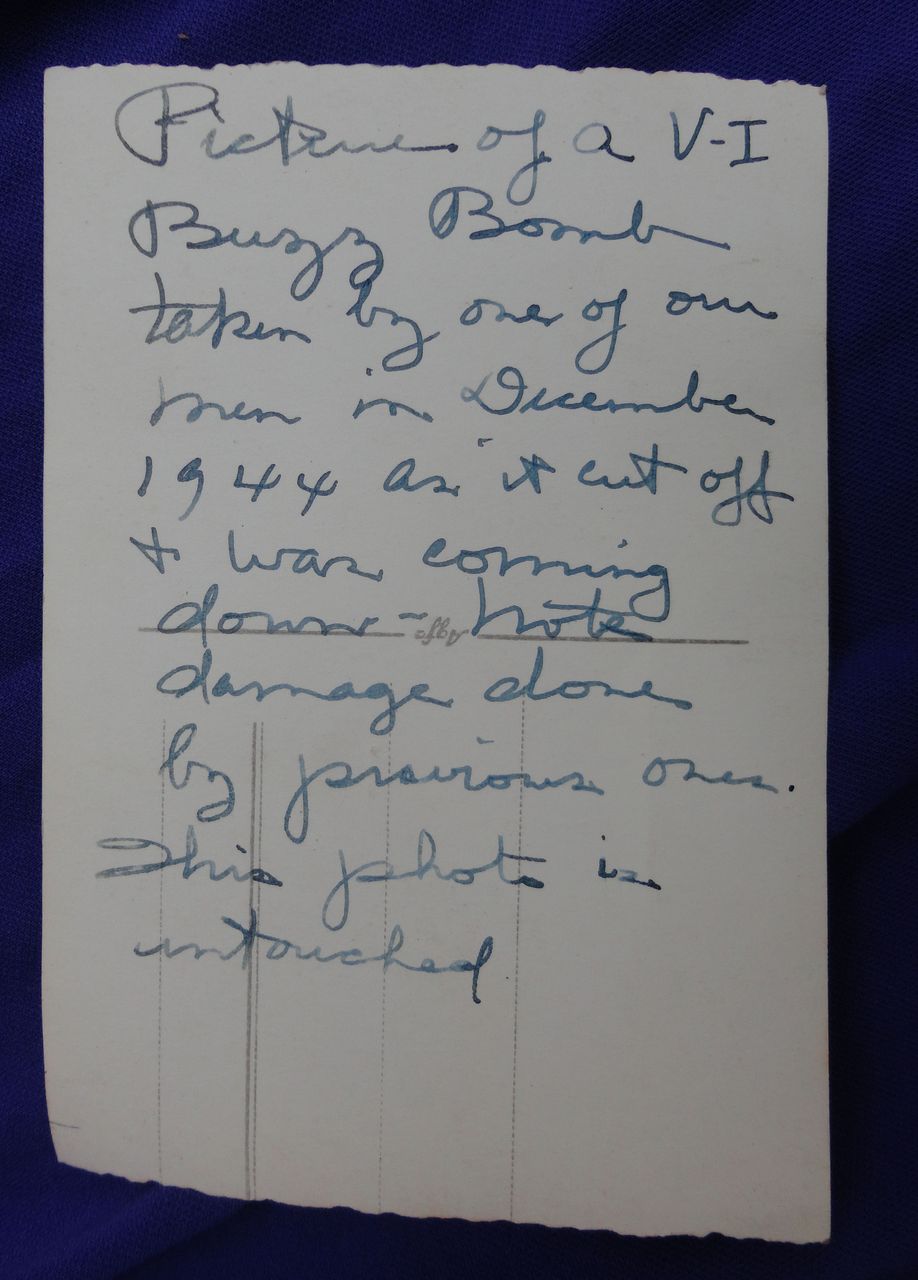 Picture of a V-I
Buzz Bomb
taken by one of our
men in December
1944 as it cut off
+ was coming
down - Note
Agfa
damage done
by previous ones.
This photo is
untouched